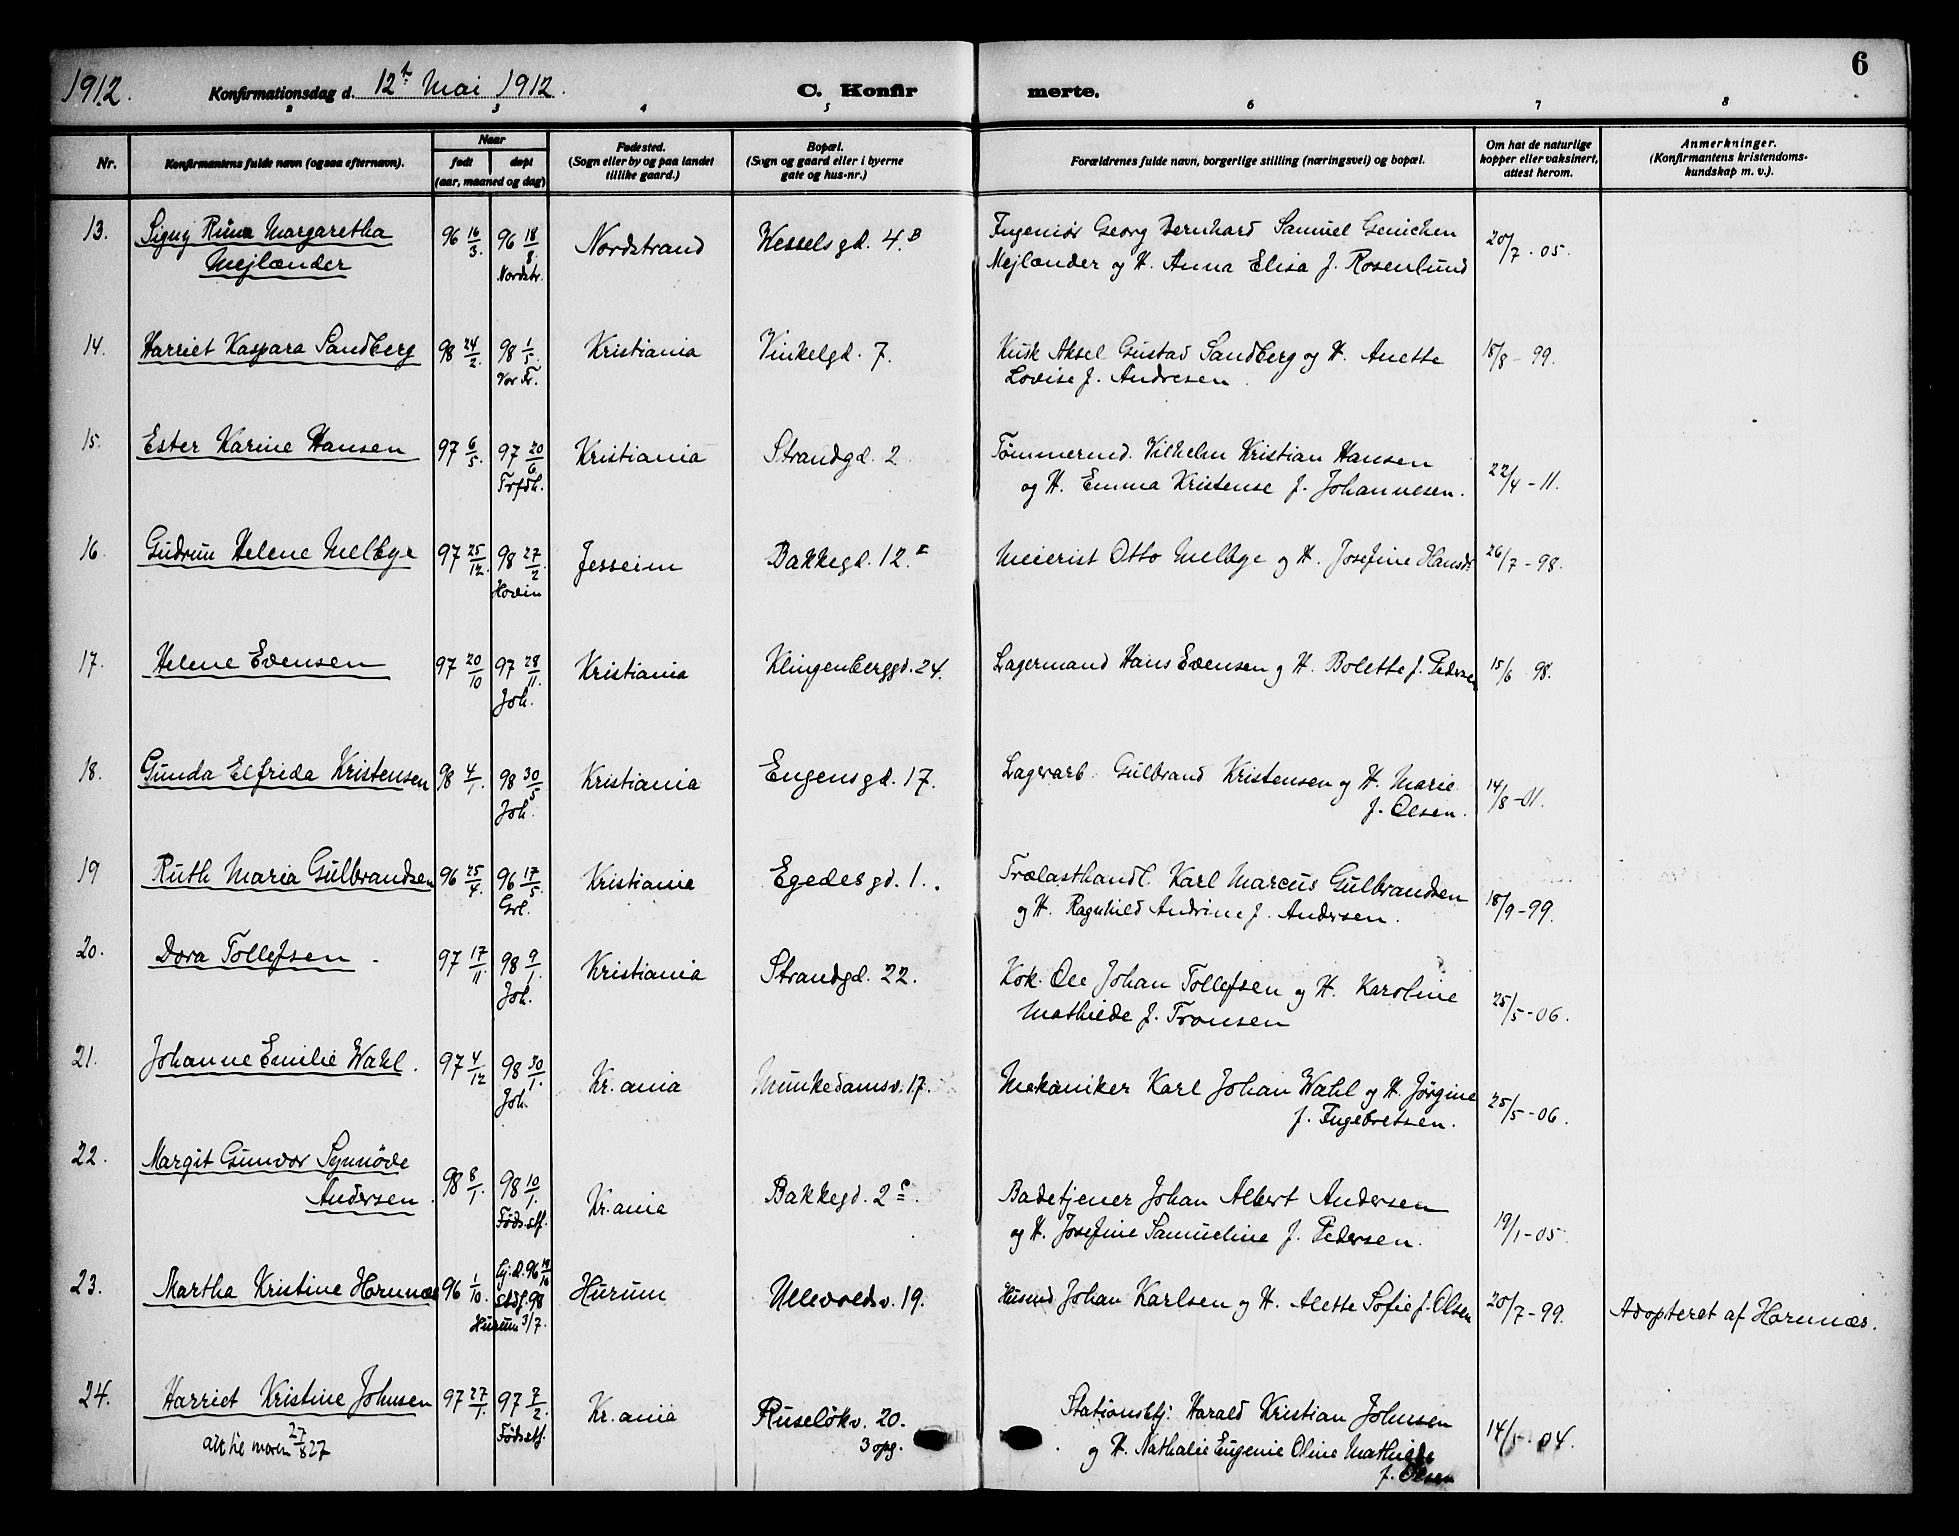 1912. Konfirmationsdag d. 12t Mai 1912. C. Konfir merte. 6
2 3 4 5 6 7 8
Nr. Konfirmantens fulde navn (ogsaa efternavn). Naar født døpt (aar, maaned og dag) Fødested. (Sogn eller by og paa landet tillike gaard.) Bopæl. (Sogn og gaard eller i byerne gate og hus-nr.) Forældrenes fulde navn, borgerlige stilling (næringsvei) og bopæl. Om hat de naturlige kopper eller vaksinert, attest herom. Anmerkninger. (Konfirmantens kristendomskundskap m. v.).
13. Signy Runa Margaretha 96 16/3. 96 18/8. Nordstrand Wesselsgd. 4.B Ingeniør Georg Bernhard Samuel Genichen 20/7. 05.
Mejlænder Nordstr. Mejlænder og H. Anna Elisa f. Rosenlund
14. Harriet Kaspara Sandberg 98 24/2. 98 1/5. Kristiania Vinkelgd. 7. Kusk Aksel Gustav Sandberg og H. Anette 18/8 - 99.
Vor Fr. Lovise f. Andresen.
15. Ester Karine Hansen 97 6/5. 97 20/6 Kristiania Strandgd. 2 Tømmermd. Vilhelm Kristian Hansen 22/4 - 11.
Trfdh. og H. Emma Kristense f. Johannesen.
16. Gudrun Helene Melbye 97 25/12. 98 27/2. Jesseim Bakkegd. 12. Meierist Otto Melbye og H. Josefine Hansdr 26/7 - 98.
Hovin
17. Helene Evensen 97 20/10 97 28/11. Kristiania Klingenberggd. 24. Lagermand Hans Evensen og H. Bolette f. Pedersen 15/6 98.
Joh.
18. Gunda Elfrida Kristensen 98 4/1. 98 30/5 Kristiania Engensgd. 17. Lagerarb. Gulbrand Kristensen og H. Marie 14/8 - 01.
Joh. f. Olsen.
19 Ruth Maria Gulbrandsen 96 25/4. 96 17/5. Kristiania Egedesgd. 1. Trælasthandl. Karl Marcus Gulbrandsen 18/9 - 99.
Grl. og H. Ragnhild Andrine f. Andersen.
20. Dora Tollefsen 97 17/11. 98 9/1. Kristiania Strandgd. 22. Kok. Ole Johan Tollefsen og H. Karoline 25/5 - 06.
Joh. Mathilde f. Tronsen
21. Johanne Emilie Wahl. 97 4/12 98 30/1. Kr.ania Munkedamsv. 17. Mekaniker Karl Johan Wahl og H. Jørgine 25/5 - 06.
Joh. f. Ingebretsen.
22. Margit Gunvor Synnøve 98 8/1. 98 10/1. Kr.ania Bakkegd. 2 c. Badetjener Johan Albert Andersen 19/1 - 05
Andersen. Føds.stf. og H. Josefine Samueline f. Pedersen.
23. Martha Kristine Hornnæs 96 1/10. hj.d. 96 Hurum Ullevoldsv. 19. Husmd Johan Karlsen og H. Alette Sofie f. Olsen 20/7 - 99. Adopteret af Hornnæs.
stdf. 98
Hurum 3/7.
24. Harriet Kristine Johnsen 97 27/1. 97 7/2. Kr.ania Ruseløkv. 20. Stationsbtj. Harald Kristian Johnsen 14/5 - 04.
att til moren 27/8 27 Føds.stf. 3 opg. og H. Nathalie Eugenie Oline Mathilde
f. Olsen